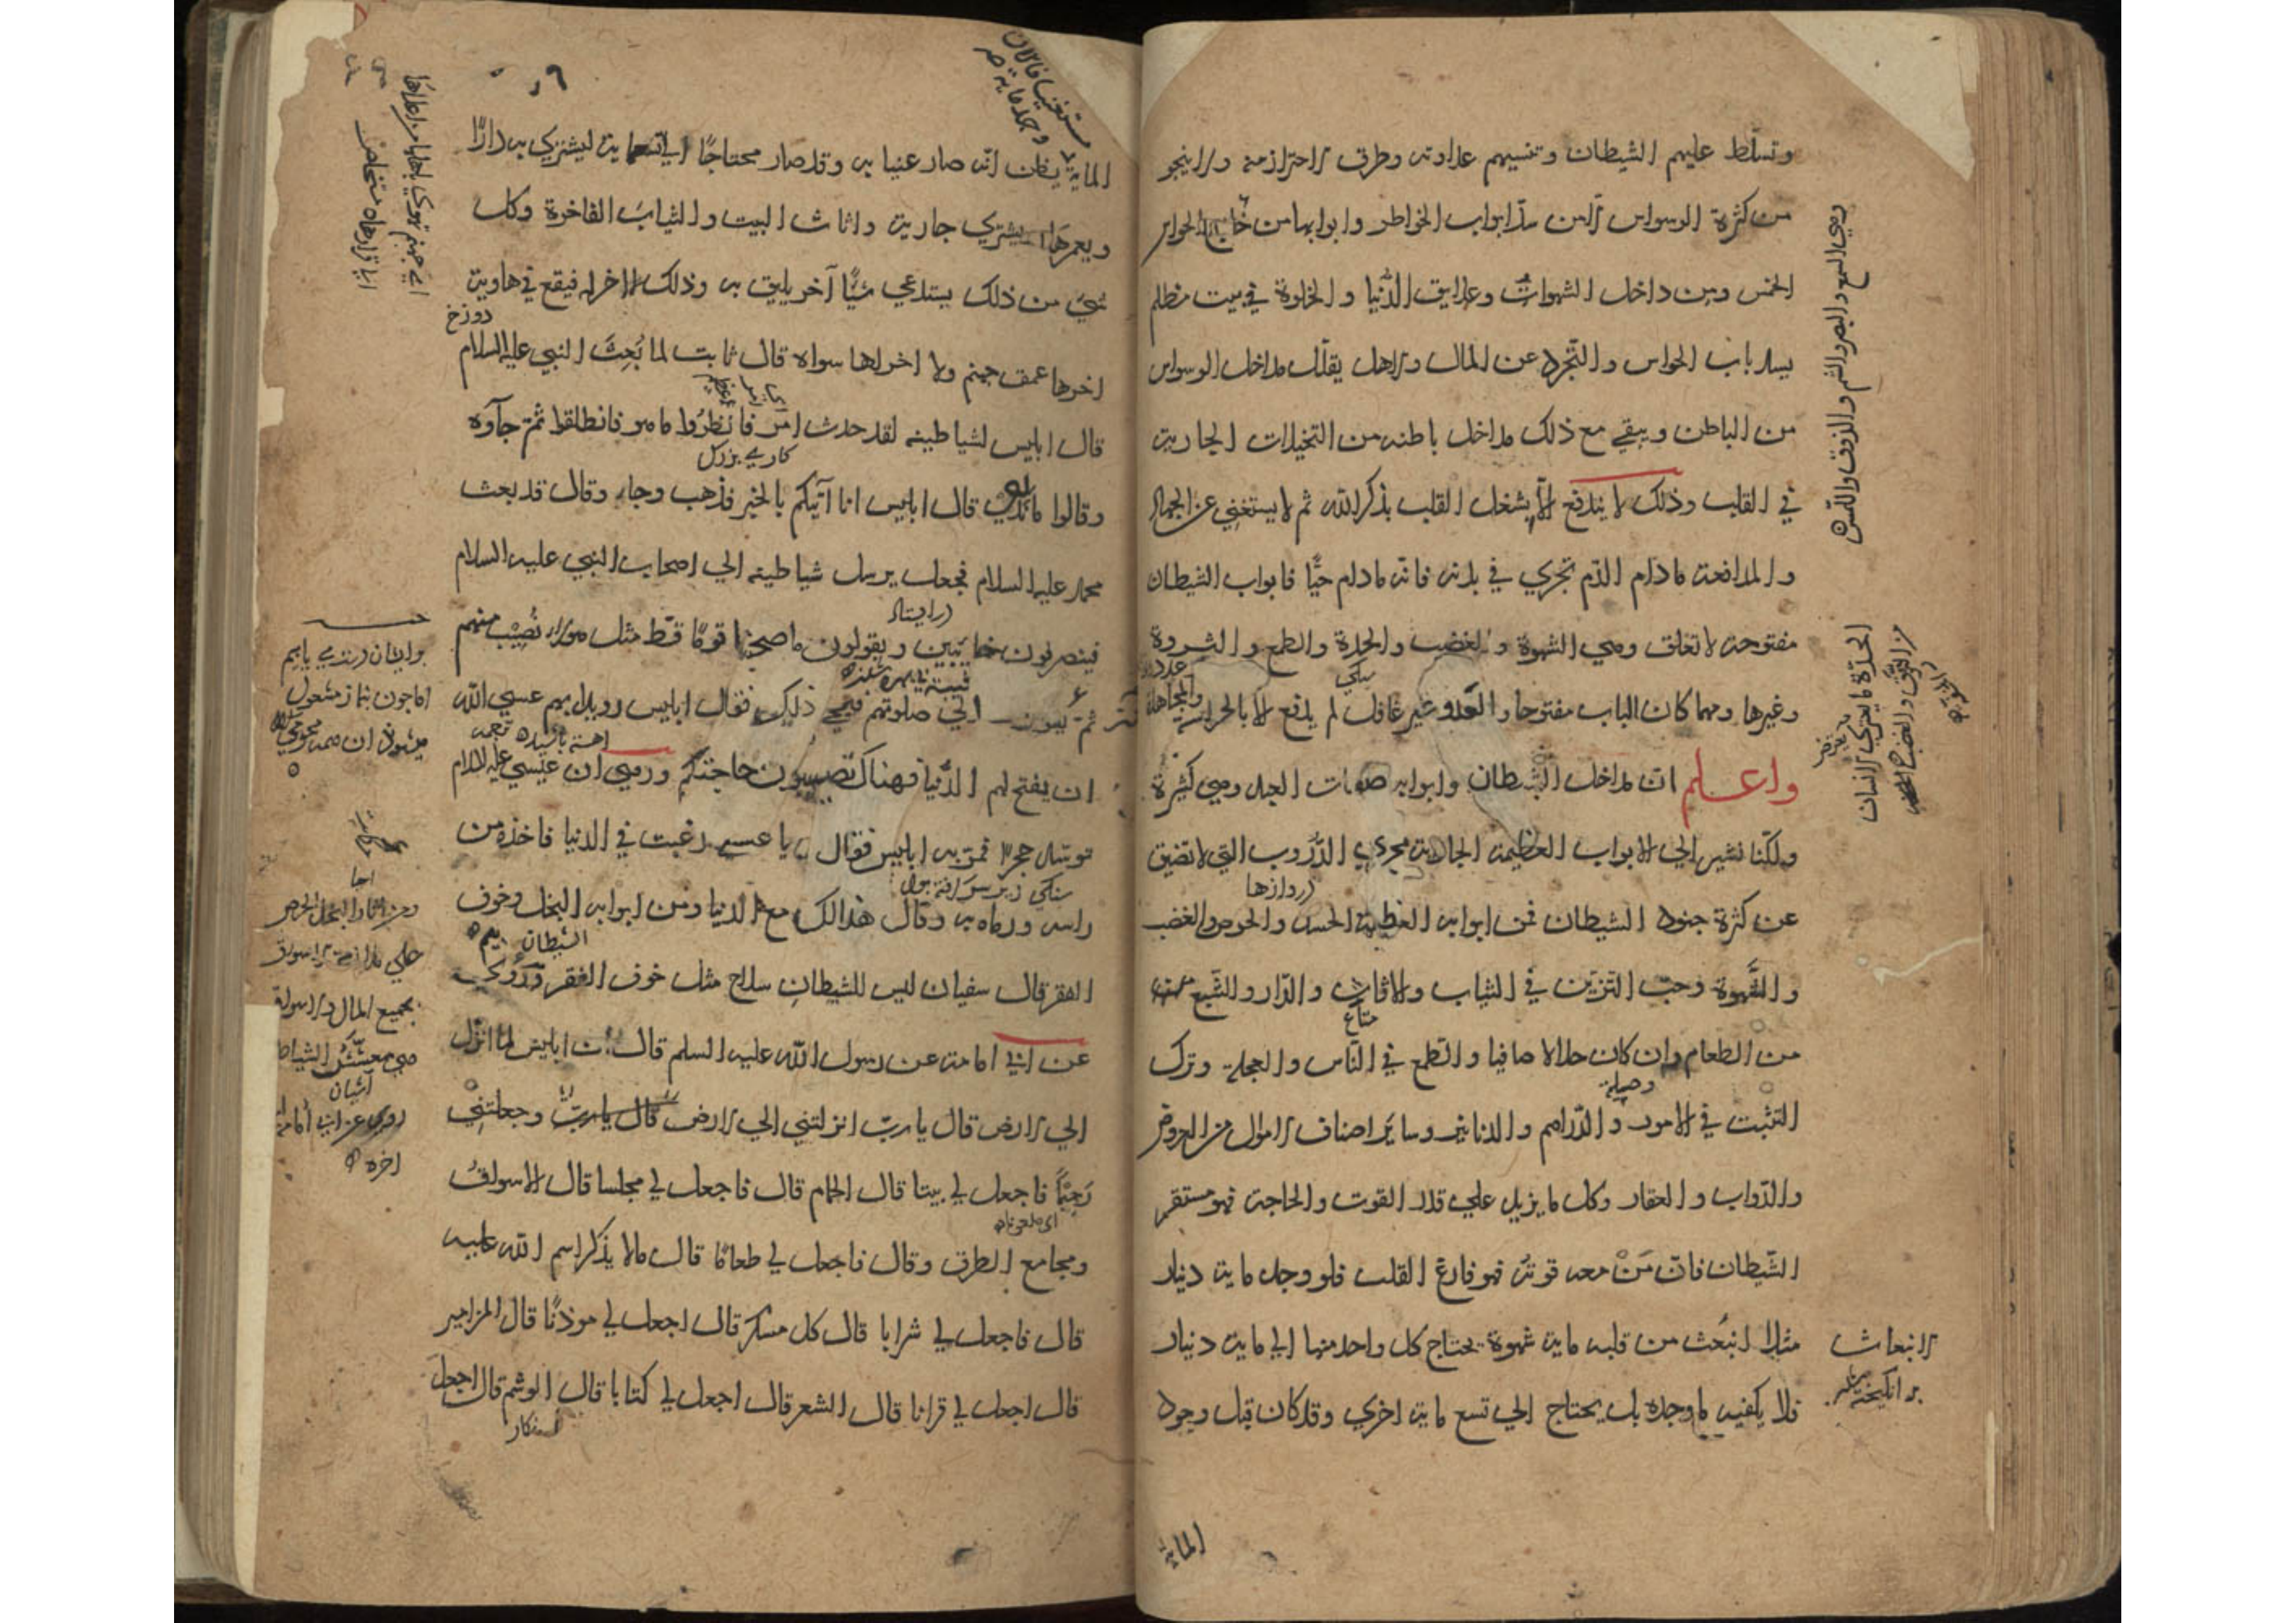 وتسلط عليهم الشيطان وتنسيهم عداوته وطرق الاحتراز منه ولا ينجو
من كثرة الوسواس الا من سدّ ابواب الخواطر وابوابها من خارج الحواس
الخمس ومن داخل الشهوات وعلايق الدُّنيا والخلوة في بيت مظلم
يسد باب الحواس والتجرد عن المال والاهل يقلّل مداخل الوسواس
من الباطن ويبقي مع ذلك مداخل باطنه من التخيلات الجارية
في القلب وذلك لا يندفع الّا بشغل القلب بذكر الله ثم لا يستغني عن الجهاد
والمدافعة مادام الدّم تجري في بدنه فانه مادام حيًّا فابواب الشيطان
مفتوحة لا تغلق وهي الشهوة والغضب والحدة والطمع والشروة
وغيرها ومهما كان الباب مفتوحا والعدو غير غافل لم يدفع الا بالحراسة
والمجاهدة
واعلم ان مداخل الشيطان وابوابه صفات العبد وهي كثيرة
ولكنّا نشير الي الابواب العظيمة الجارية مجري الدُّروب التي لا تضيق
دروازها
عن كثرة جنود الشيطان فمن ابوابه العظيمة الحسد والحرص والغضب
والشَّهوة وحبّ التّزيّن في الثياب والاثاث والدّار والشّبع
متاع
من الطعام وان كان حلالا صافيا والطمع في النّاس والعجلة وترك
التثبت في الامور والدّراهم والدنانير وسائر اصناف الاموال من العروض
والدّواب والعقار وكل ما يزيد علي قدر القوت والحاجة فهو مستقر
الشّيطان فانّ مَنْ معه قوتهُ فهو فارغ القلب فلو وجد ماية دينار
مثلا انبعث من قلبه ماية شهوة يحتاج كل واحد منها الي ماية دينار
فلا يكفيه ما وجده بل يحتاج الي تسع ماية اخري وقد كان قبل وجود
الماية
وهي السمع والبصر والشم والذوق واللمس
الحدّة ما يعتري الانسان
من النزق والغضب
الانبعاث
بر انگيخته شدن
مستغنيا فالان
وجد ماية
الماية يظن انّه صار غنيا به وقد صار محتاجًا الي تسعماية ليشتري به دارًا
ويعمرها ويشتري جارية واثاث البيت والثياب الفاخرة وكل
شيء من ذلك يستدعي شيًّا آخر يليق به وذلك لا اخر له فيقع في هاوية
دوزخ
اخرها عمق جهنم ولا اخر لها سواه قال ثابت لما بُعِثَ النبي عليه السلام
قال ابليس لشياطينه لقد حدث امر فانظرُوا ما هو فانطلقوا ثمّ جآوه
كاري بزرك
وقالوا ما ندري قال ابليس انا آتيكم بالخبر فذهب وجاء وقال قد بعث
محمد عليه السلام فجعل يرسل شياطينه الي اصحاب النبي عليه السلام
فينصرفون خائبين ويقولون ما صحبنا قومًا قطّ مثل هولاء نُصيْب منهم
ثم يقومون الي صلوتهم فيمحي ذلك فقال ابليس رويدا بهم عسي الله
ان يفتح لهم الدُّنيا فهناك تصيبون حاجتكم وروي ان عيسي عليه السلام
توسّد حجرا فمرّ به ابليس فقال يا عيسي رغبت في الدنيا فاخذه من
تحت
راسه ورماه به وقال هذا لك مع الدنيا ومن ابوابه البخل وخوف
الفقر قال سفيان ليس للشيطان سلاح مثل خوف الفقر وروي
عن ابي امامة عن رسول الله عليه السلم قال ان ابليس لما انزل
الي الارض قال يا ربّ انزلتني الي الارض قال يا ربّ وجعلتني
رَجِيْمًا فاجعل لي بيتا قال الحمام قال فاجعل لي مجلسا قال الاسواقُ
ومجامع الطرق وقال فاجعل لي طعامًا قال ما لا يذكر اسم الله عليه
قال فاجعل لي شرابا قال كل مسكر قال اجعل لي موذنًا قال المزامير
قال اجعل لي قرانا قال الشعر قال اجعل لي كتابا قال الوشم قال اجعل
بجميع المال والاسواق
هي معشّش الشياطين
آشيان
روي عن ابي امامة
اخره